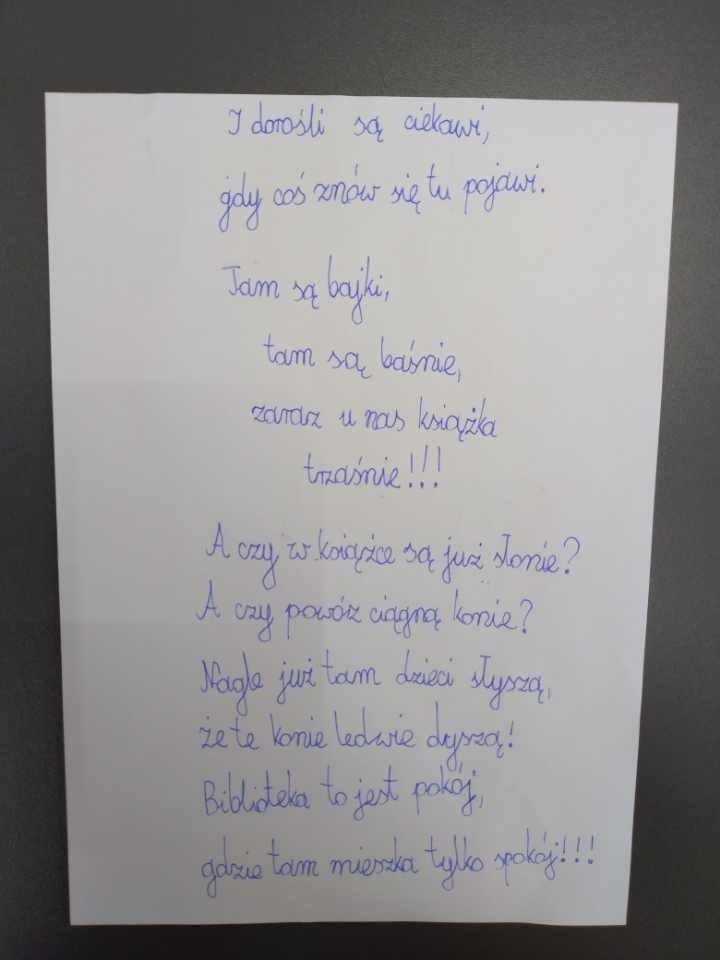 I dorośli są ciekawi,
gdy coś znów się tu pojawi.
Tam są bajki,
tam są baśnie,
zaraz u nas książka
trzaśnie!!!
A czy w książce są już słonie?
A czy powóz ciągną konie?
Nagle już tam dzieci słyszą,
że te konie ledwie dyszą!
Biblioteka to jest pokój,
gdzie tam mieszka tylko spokój!!!